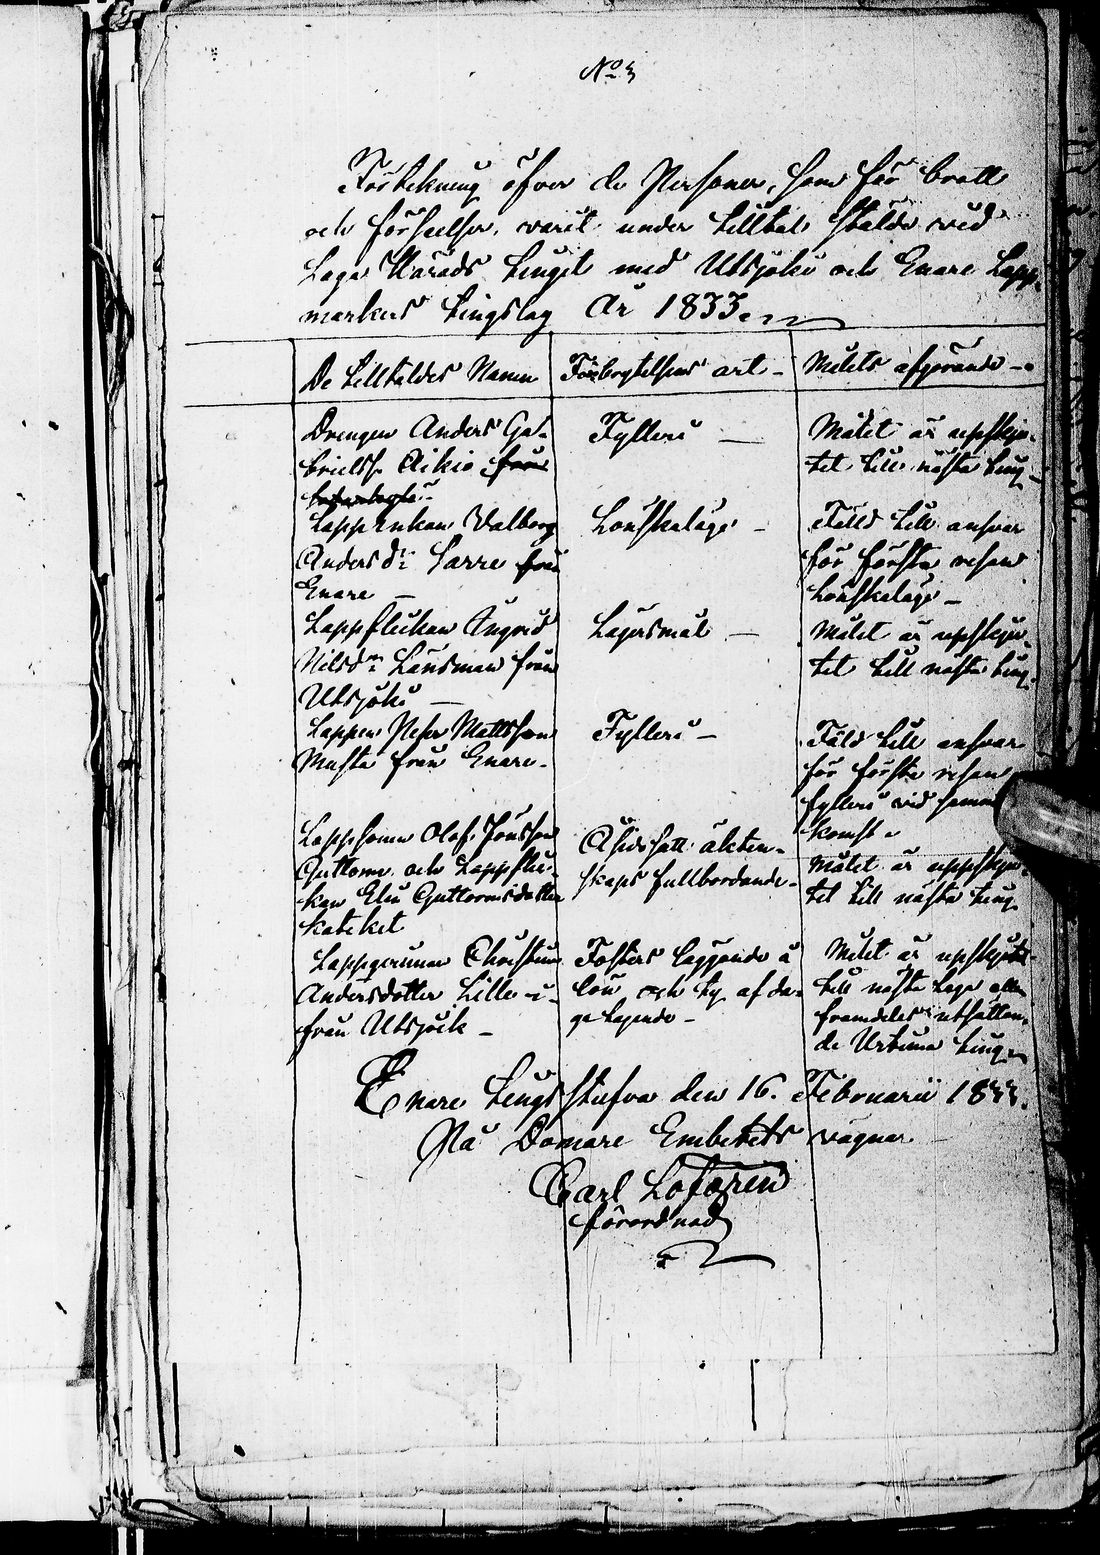 No 3
Förtekning öfver de Personer, som för brott
och förseelser, varit under tilltal stälde vid
Laga Härads Tinget med Utsjoki och Enare Lapp-
markers Tingslag År 1833.
De tilltaldes Namn
Förbrytelsens art
Målets afgörande
Drengen Anders Ga-
brielss. Aikio från
Fylleri
Målet är uppskju-
tet till nästa ting
Lappenkan Valborg
Andersdr Sarre från
Enare
Lönskaläge
Fälld till ansvar
för första resan
Lönskaläge
Lappflickan Ingrid
Nilsdr Länsman från
Utsjoki
Lägersmål
Målet är uppskju-
tet till nästa ting
Lappen Peter Mattsson
Musta från Enare
Fylleri
Fäld till ansvar
för första resan
fylleri vid sammankomst
Lappsonen Olof Jonsson
Guttorm och Lappflic-
kan Elin Guttormsdotter
Kateket
Åsidosatt äkten-
skaps fullbordande
Målet är uppskju-
tet till nästa ting
Lappqvinnan Christina
Andersdotter Lille
från Utsjock
Fosters läggande å
lön och ty af da-
ga tagande
Målet är uppskjutet
till nästa laga eller
framdeles utsättan-
de Urtima ting
Enare Tings Stufva den 16. Februarii 1833.
På Domare Embetets vägnar
Carl Lofgren
förordnad